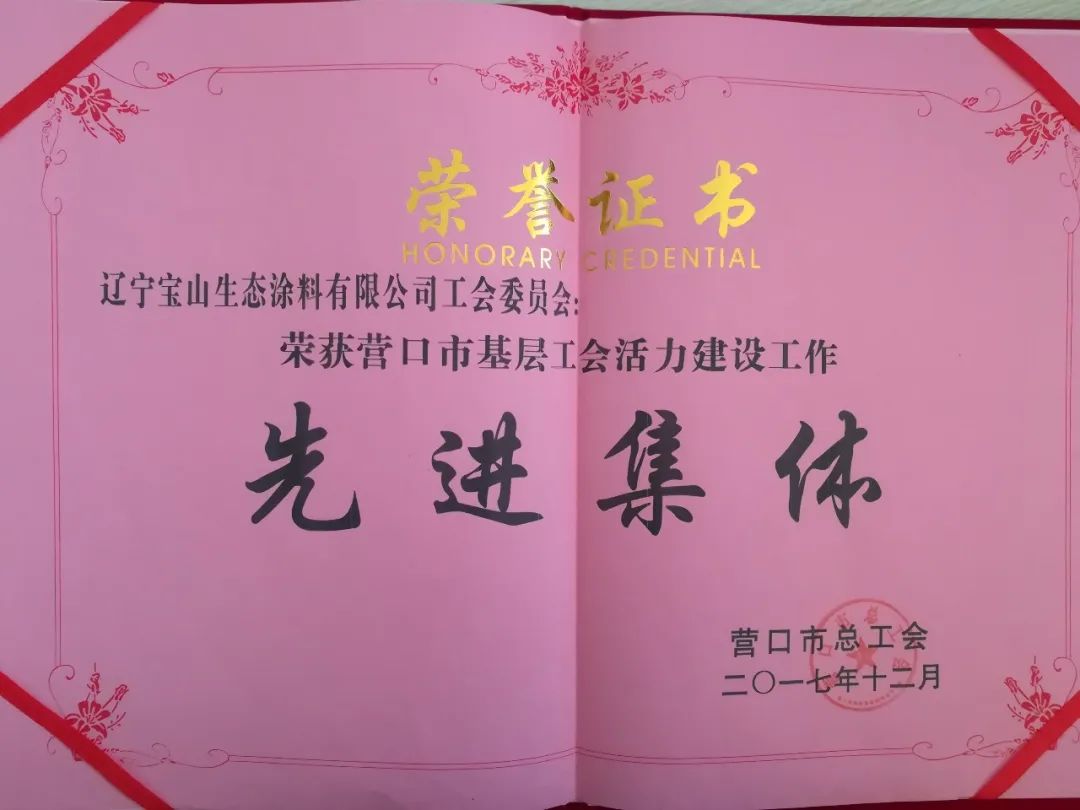 荣誉证书
HONORARY CREDENTIAL
辽宁宝山生态涂料有限公司工会委员会:
荣获营口市基层工会活力建设工作
先进集体
营口市总工会
二〇一七年十二月